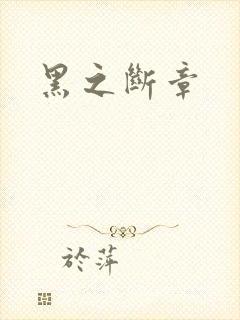 黑之斷章
於萍